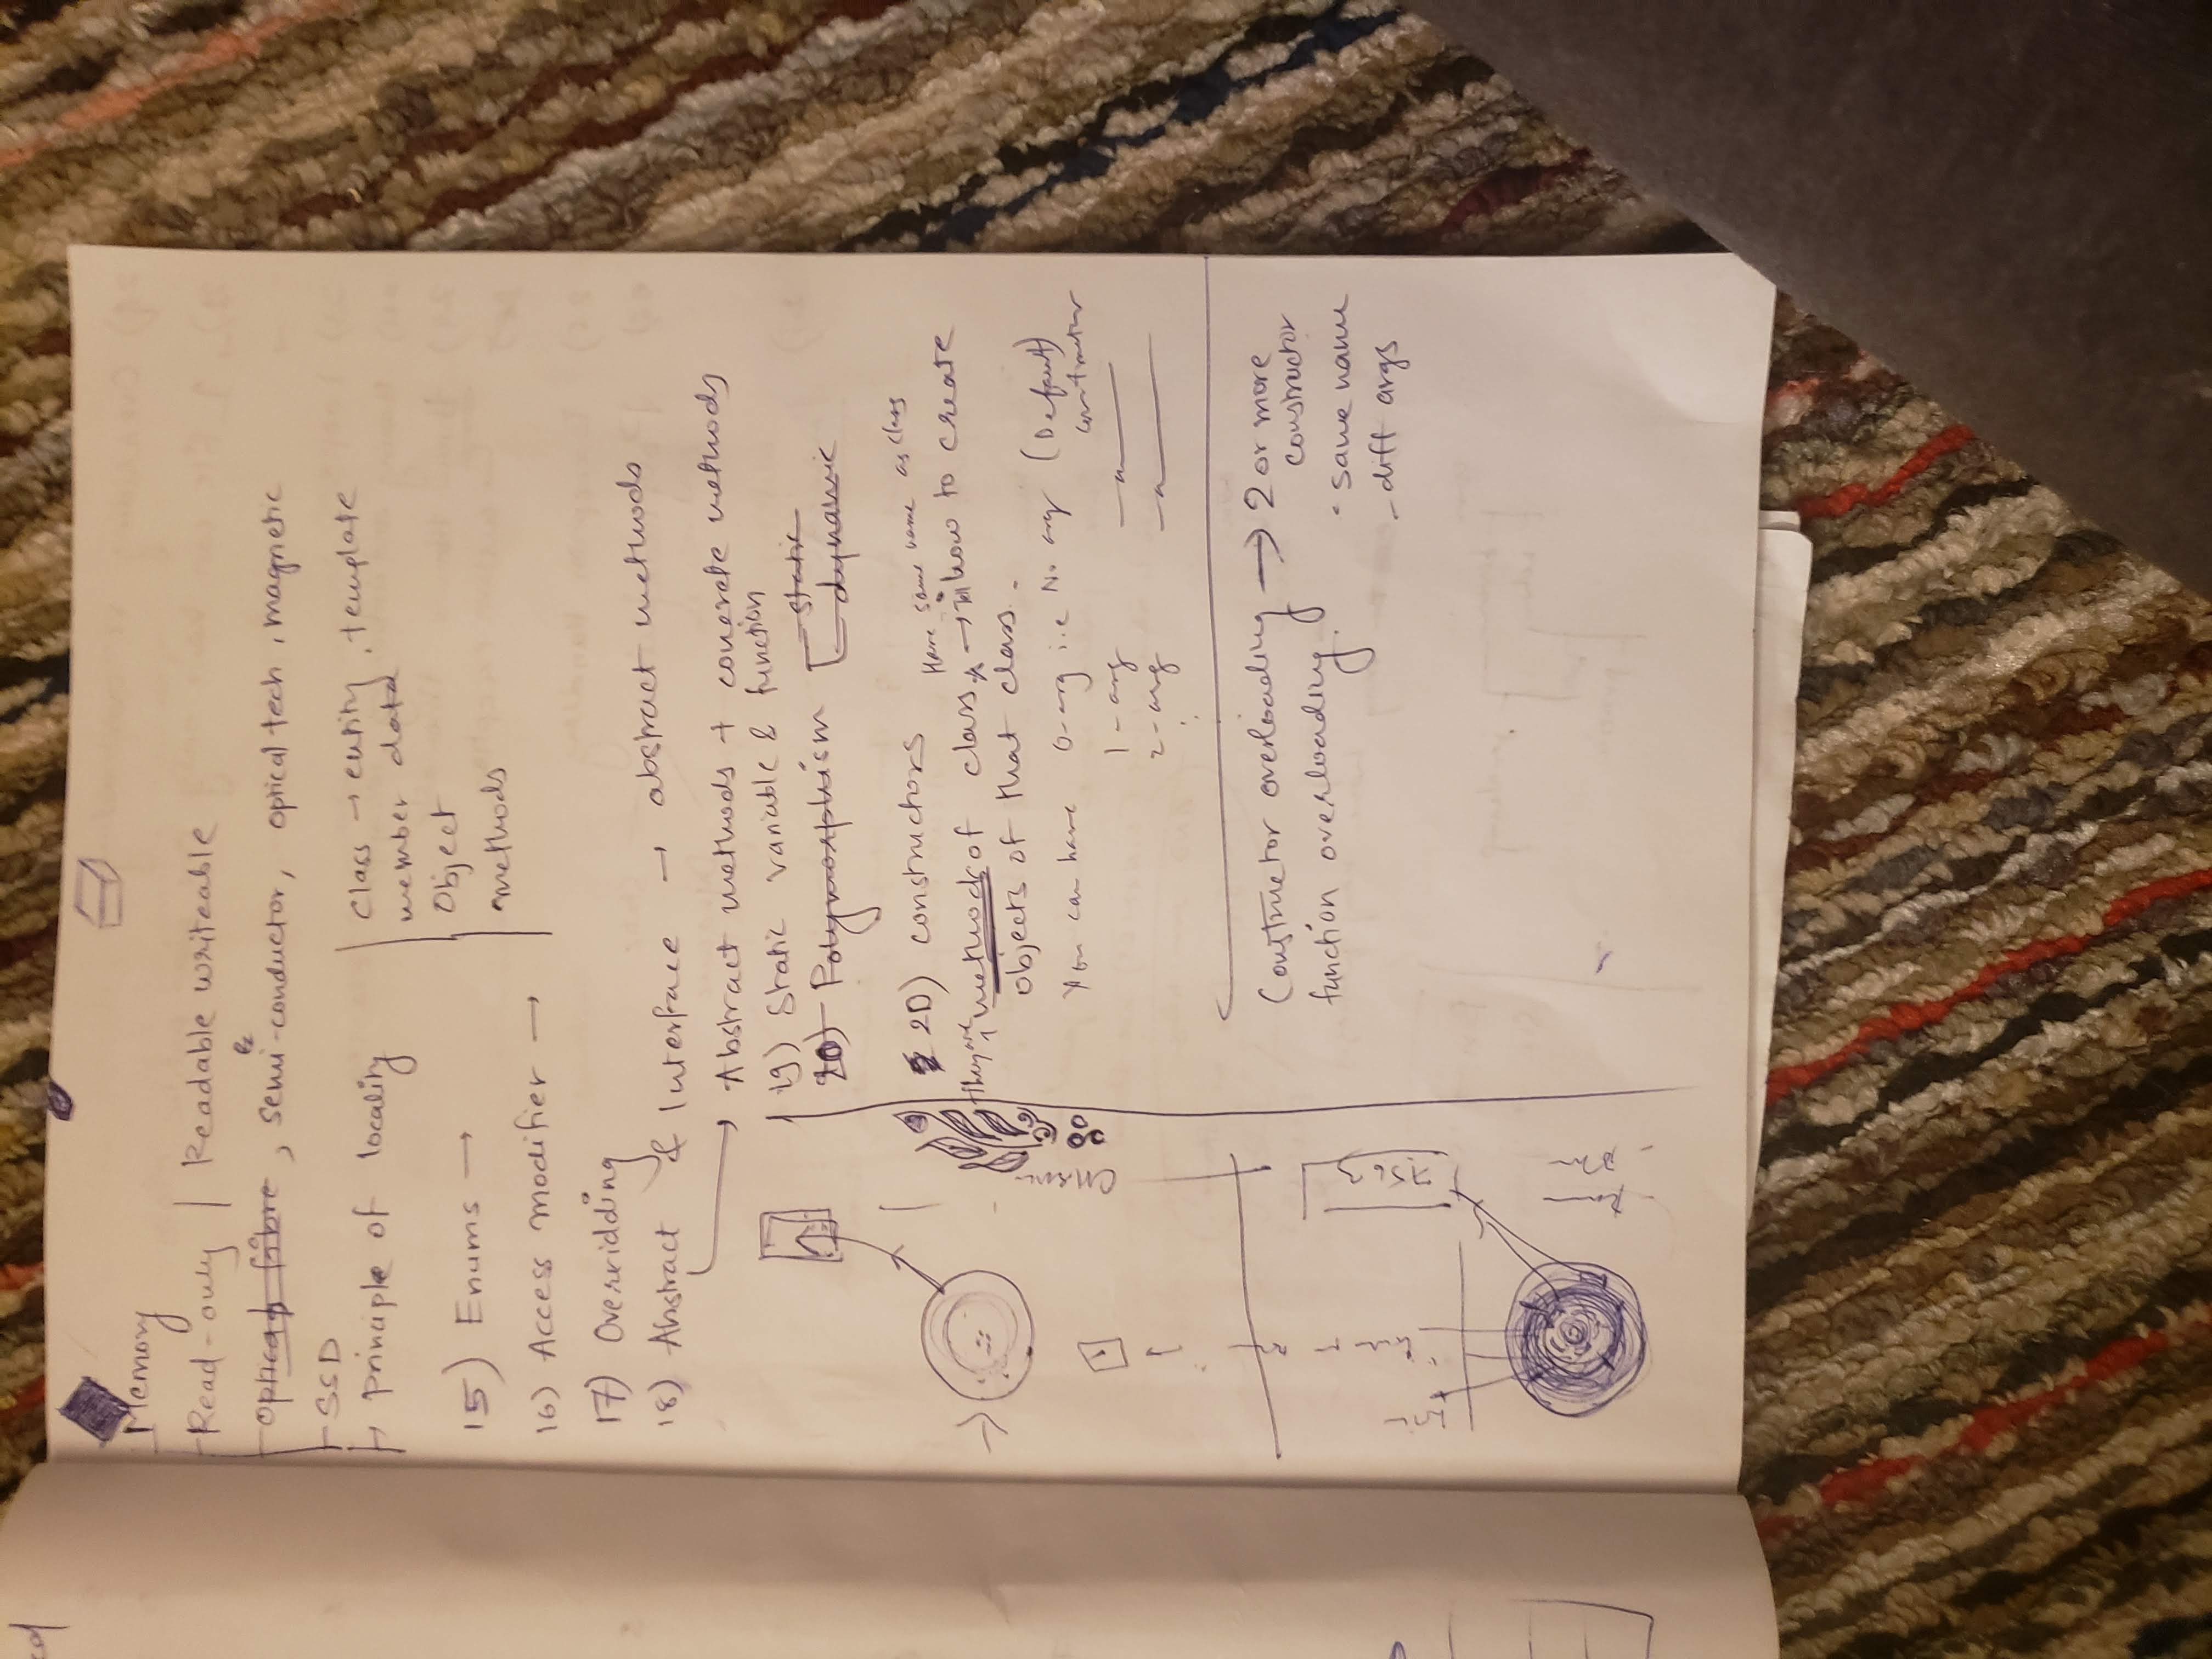 Memory
Read-only | Readable writeable
optical fibre, semi-conductor, optical tech, magnetic
SSD
principle of locality
class → entity, template
member data
Object
methods
15) Enums →
16) Access modifier →
17) Overridding
18) Abstract & Interface → abstract methods
Abstract methods + concrete methods
19) Static variable & function
20) Polymorphism static
dynamic
20) constructors
Have same name as class
They are methods of class → Tell how to create
objects of that class.
You can have 0-arg i.e No arg (Default)
constructor
1-arg
2-arg
Constructor overloading → 2 or more
constructor
function overloading.
· same name
- diff args
7563